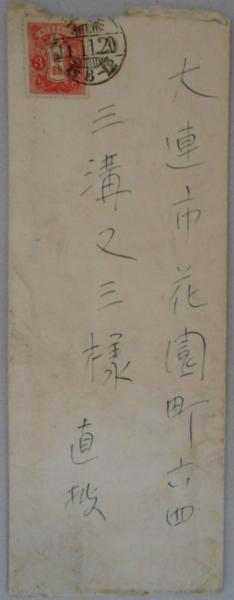 大連市花園町六四
三溝又三様
直披
3
11.11.20